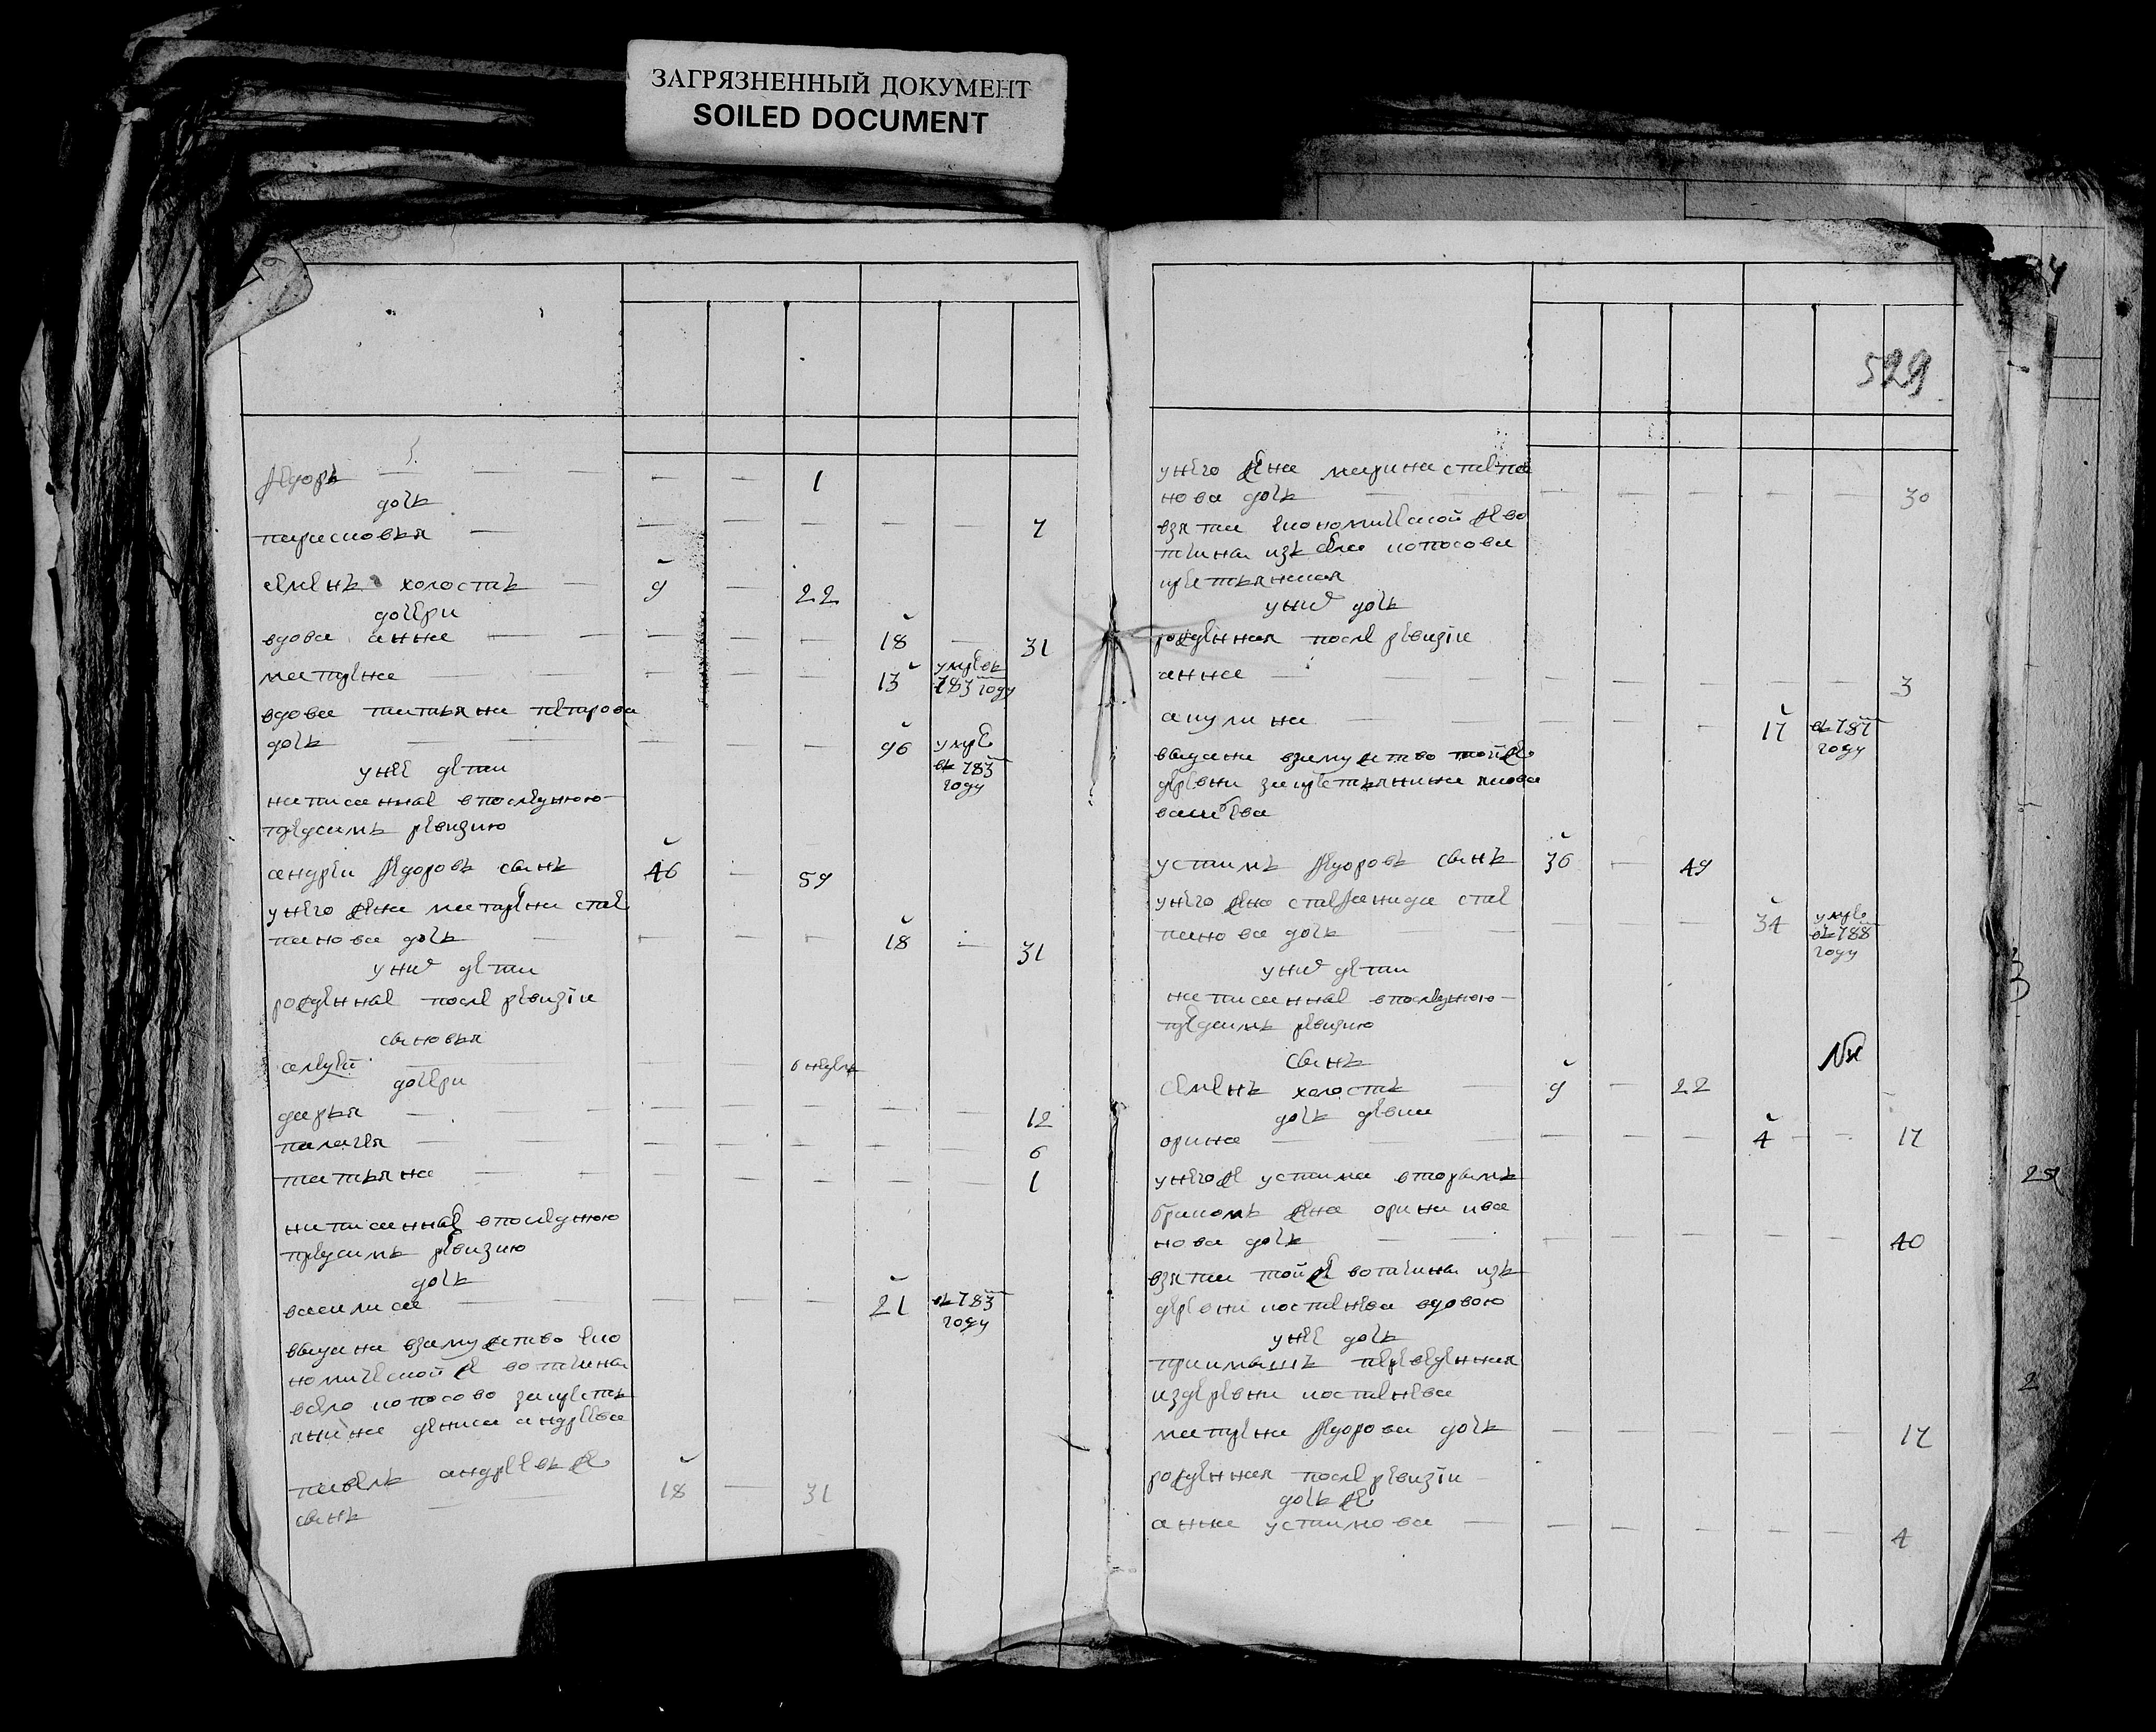 ЗАГРЯЗНЕННЫЙ ДОКУМЕНТ
SOILED DOCUMENT
федоръ — — — 1
дочь
парасковья — — — — — — 7
семенъ холостъ — 9 — 22
дочери
вдова анна — — — — 18 — 31
матрена — — — — 13 умре въ 783 году
вдова татьяна петрова
дочь — — — — 96 умре въ 783 году
у нее дети
написанныя в последнюю
пред симъ ревизию
андрей федоровъ сынъ 46 — 59
у него жена матрена сте
панова дочь — — — 18 — 31
у них дети
рожденныя после ревизiи
сыновья
дочери
дарья — — — — — — 12
палагея — — — — — — 6
татьяна — — — — — — 1
написанныя в последнюю
пред симъ ревизию
дочь
василиса — — — — 21 въ 783 году
выдана в замужство еко
номической же вотчины
в село копосово за кресть
янина дениса андреева
павелъ андреевъ же
сынъ — 18 — 31
529
у него жена марина степа
нова дочь — — — — — — 30
взята економической же во
тчины изъ села копосова
крестьянская
у них дочь
рожденная после ревизiи
анна — — — — — — 3
акулина — — — — 17 въ 787 году
выдана в замужство той же
деревни за крестьянина якова
устинъ федоровъ сынъ 36 — 49
у него жена стефанида сте
панова дочь — — — 34 умре въ 788 году
у них дети
написанныя в последнюю
пред симъ ревизию
сынъ
семенъ холостъ — 9 — 22
дочь девка
орина — — — — 4 — 17
у него же устина вторымъ
бракомъ жена орина ива
нова дочь — — — — — — 40
взята той же вотчины изъ
деревни вдовою
у нее дочь
переведенная
из деревни
матрена федорова дочь — — — — — 17
рожденная после ревизiи
дочь же
анна устинова — — — — — — 4